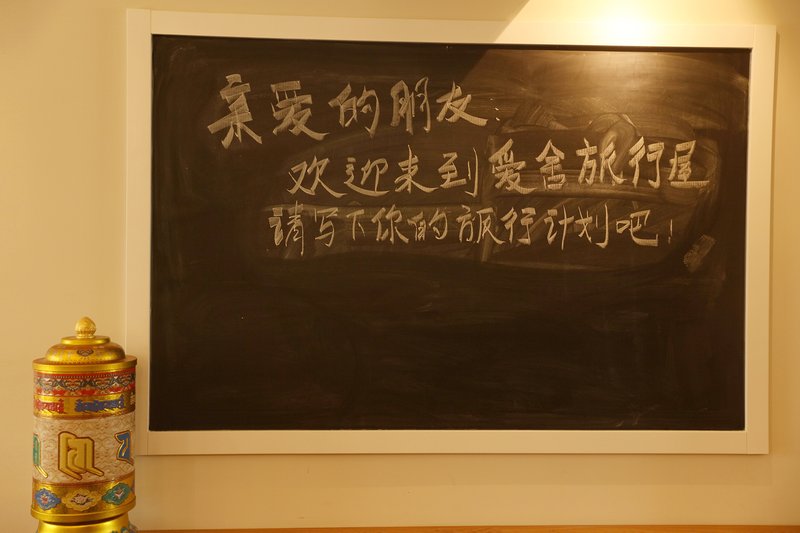 亲爱的朋友：
欢迎来到爱舍旅行屋
请写下你的旅行计划吧！